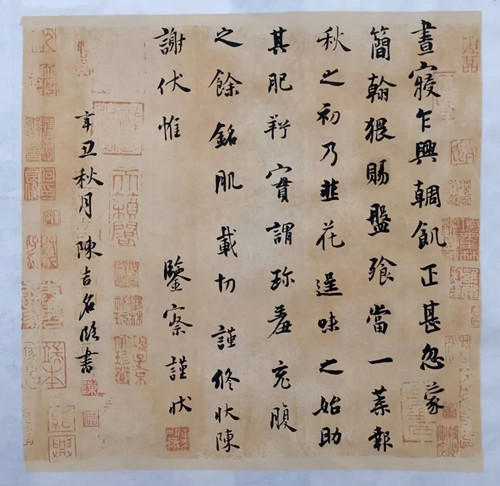 晝寢乍興輖飢正甚忽蒙
簡翰猥賜盤飧當一葉報
秋之初乃韭花逞味之始助
其肥羜實謂珍羞充腹
之餘銘肌載切謹修狀陳
謝伏惟 鑒察謹狀
辛丑秋月陳吉名臨書